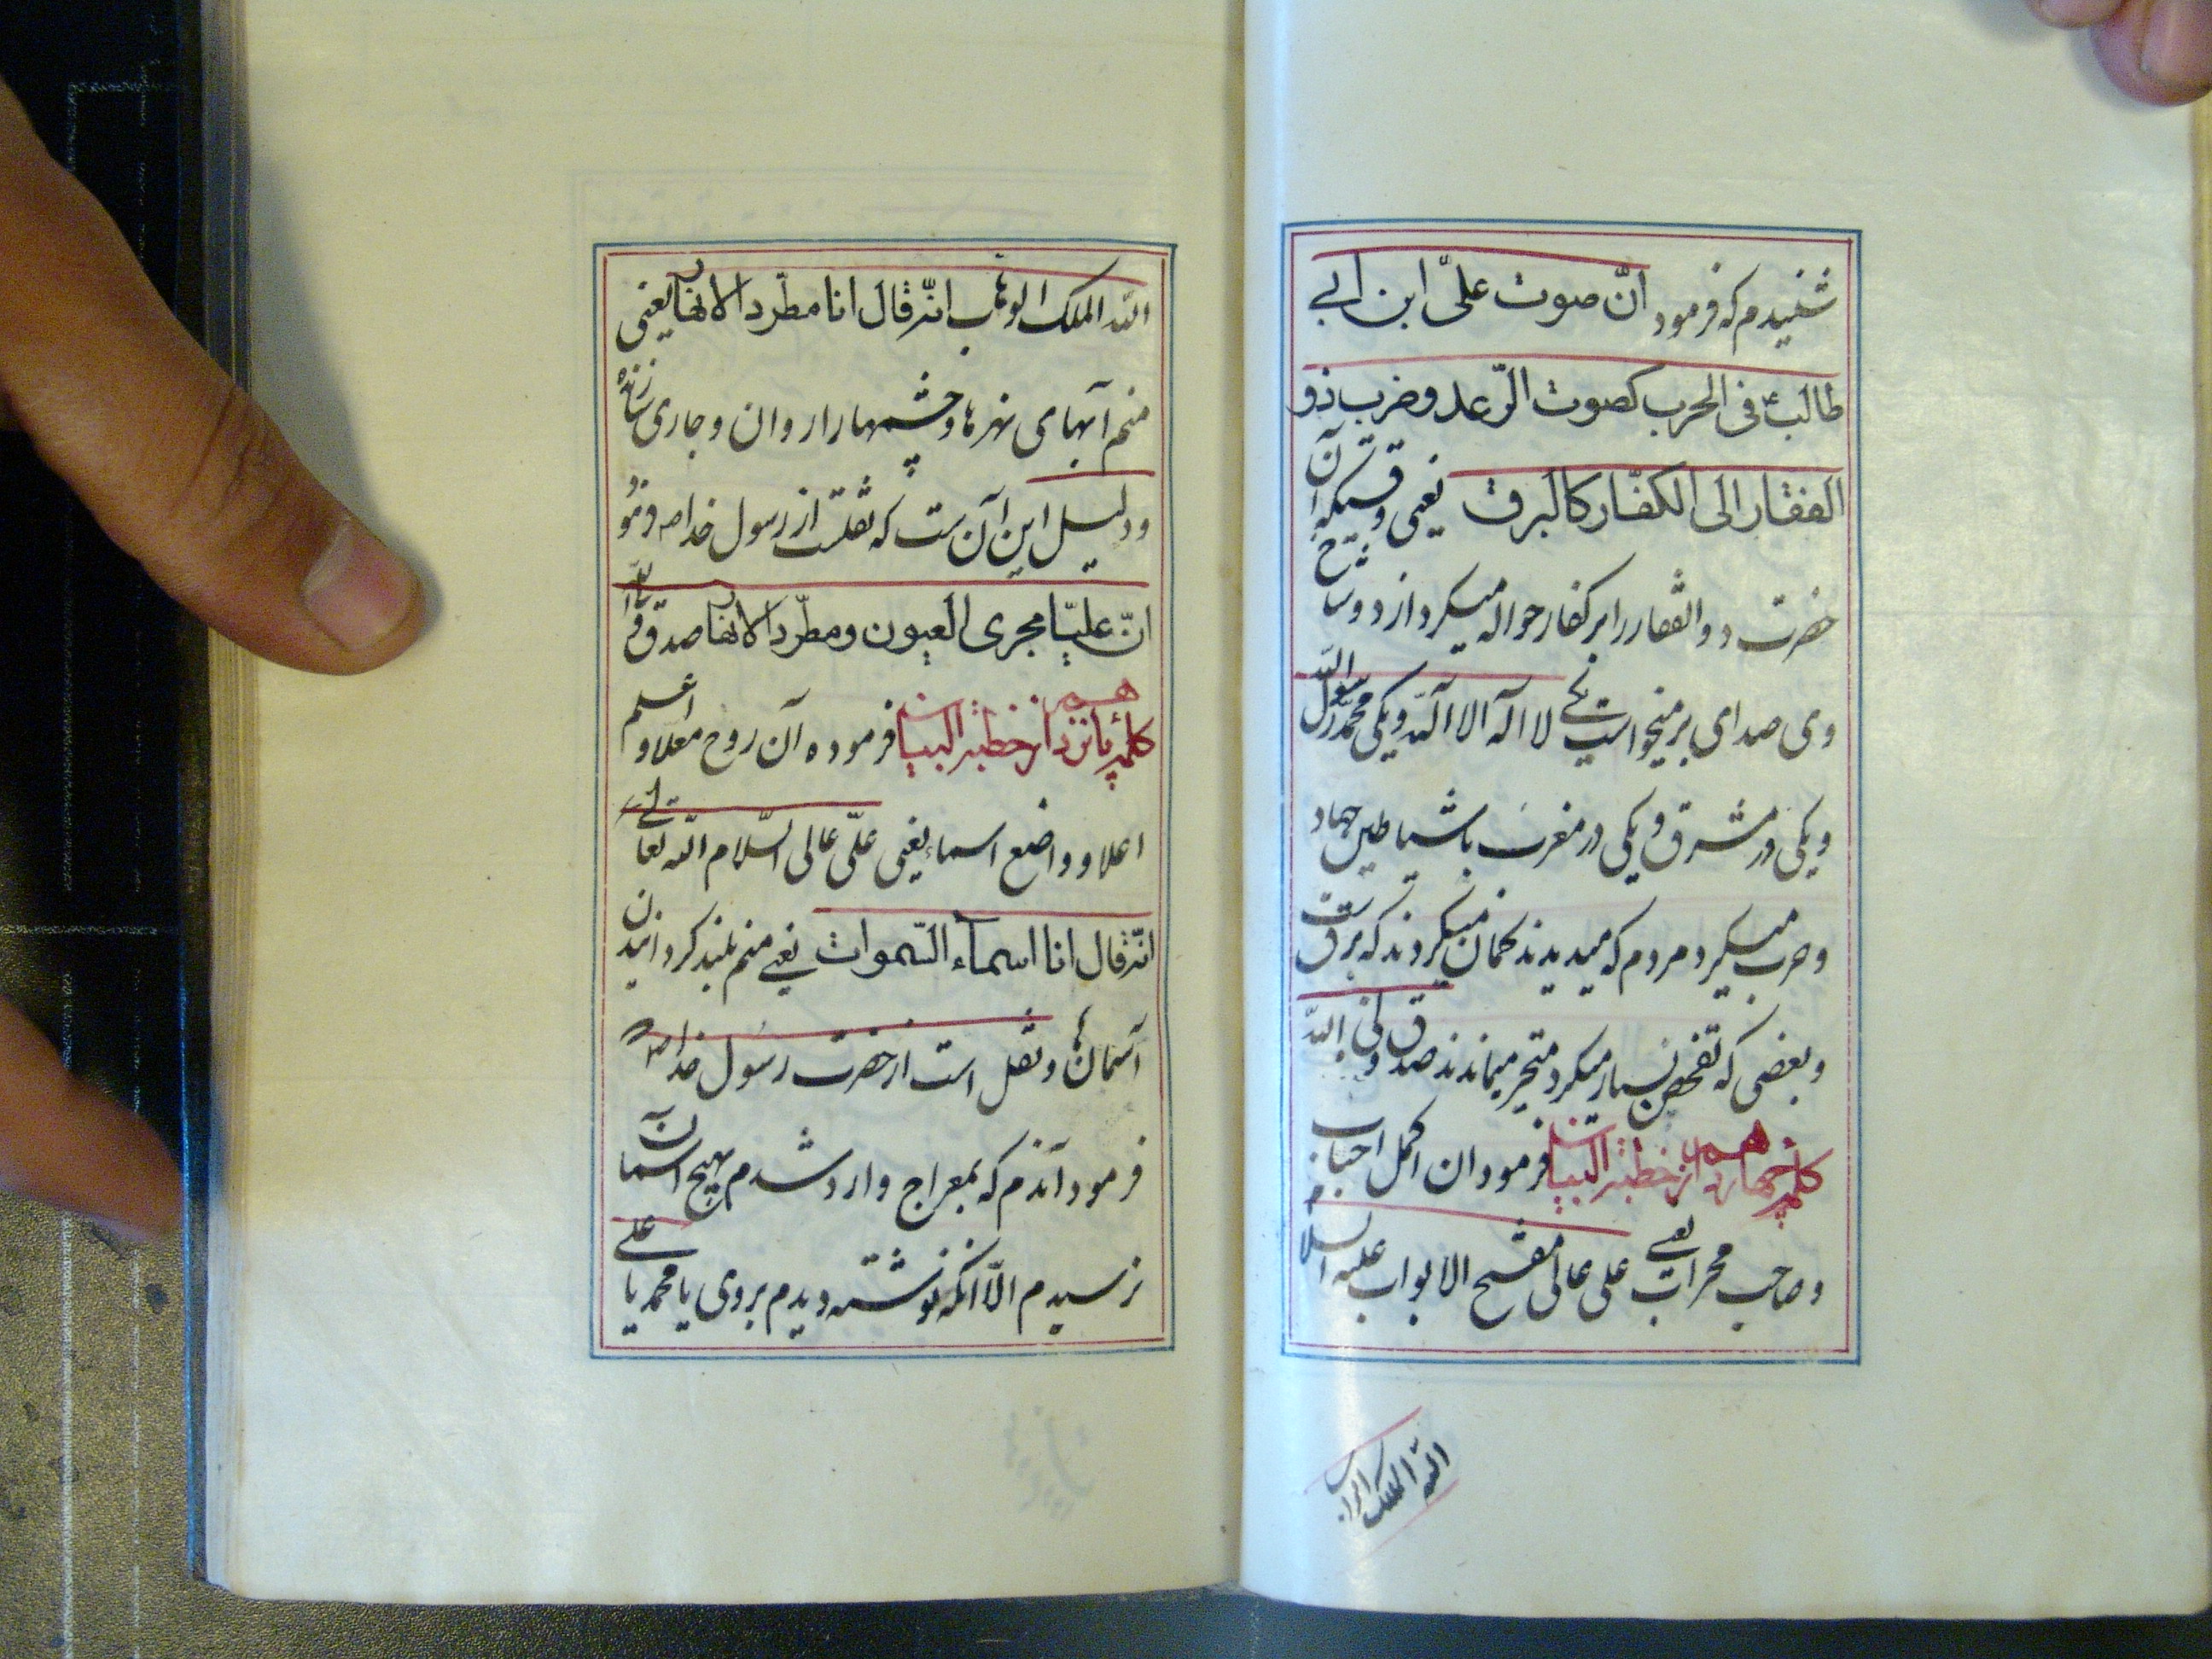 شنیدم که فرمود انّ صوت علیّ ابن ابی
طالبؑ فی الحرب کصوت الرّعد و ضرب ذو
الفقار الی الکفّار کالبرق یعنی وقتیکه آن
حضرت ذوالفقار را بر کفار حواله میکرد از دو شاخ
وی صدای بر میخواست یکی لا اله الا الله و یکی محمد رسول الله
و یکی در مشرق و یکی در مغرب با شیاطین جهاد
و حرب میکرد مردم که میدیدند گمان میکردند که برقست
و بعضی که تفحص بسیار میکرد متحیر میماندند صدق ولی الله
کلمه چهاردهم از خطبة البیان فرمود ان اکمل احباب
و صاحب محراب یعنی علی عالی مفتح الابواب علیه السلام
الله الملک الوهاب
الله الملک الوهاب انّه قال انا مطرد الانهار یعنی
منم آبهای نهرها و چشمهارا روان و جاری سازنده
و دلیل این آن ست که نقلست از رسول خدا ص فرمود
انّ علیّا مجری العیون و مطرّد الانهار صدق ولی الله
کلمه پانزدهم از خطبة البیان فرموده آن روح معلا و اعلم
اعلا و واضع اسماء یعنی علیّ عالی السّلام الله تعالی
انّه قال انا اسماء السّموات یعنی منم بلند گردانیدن
آسمان ها و نقل است از حضرت رسول خدا ص که
فرمود آندم که بمعراج وارد شدم بهیچ آسمان
نرسیدم الّا آنکه نوشته دیدم بروی یا محمد یا علی